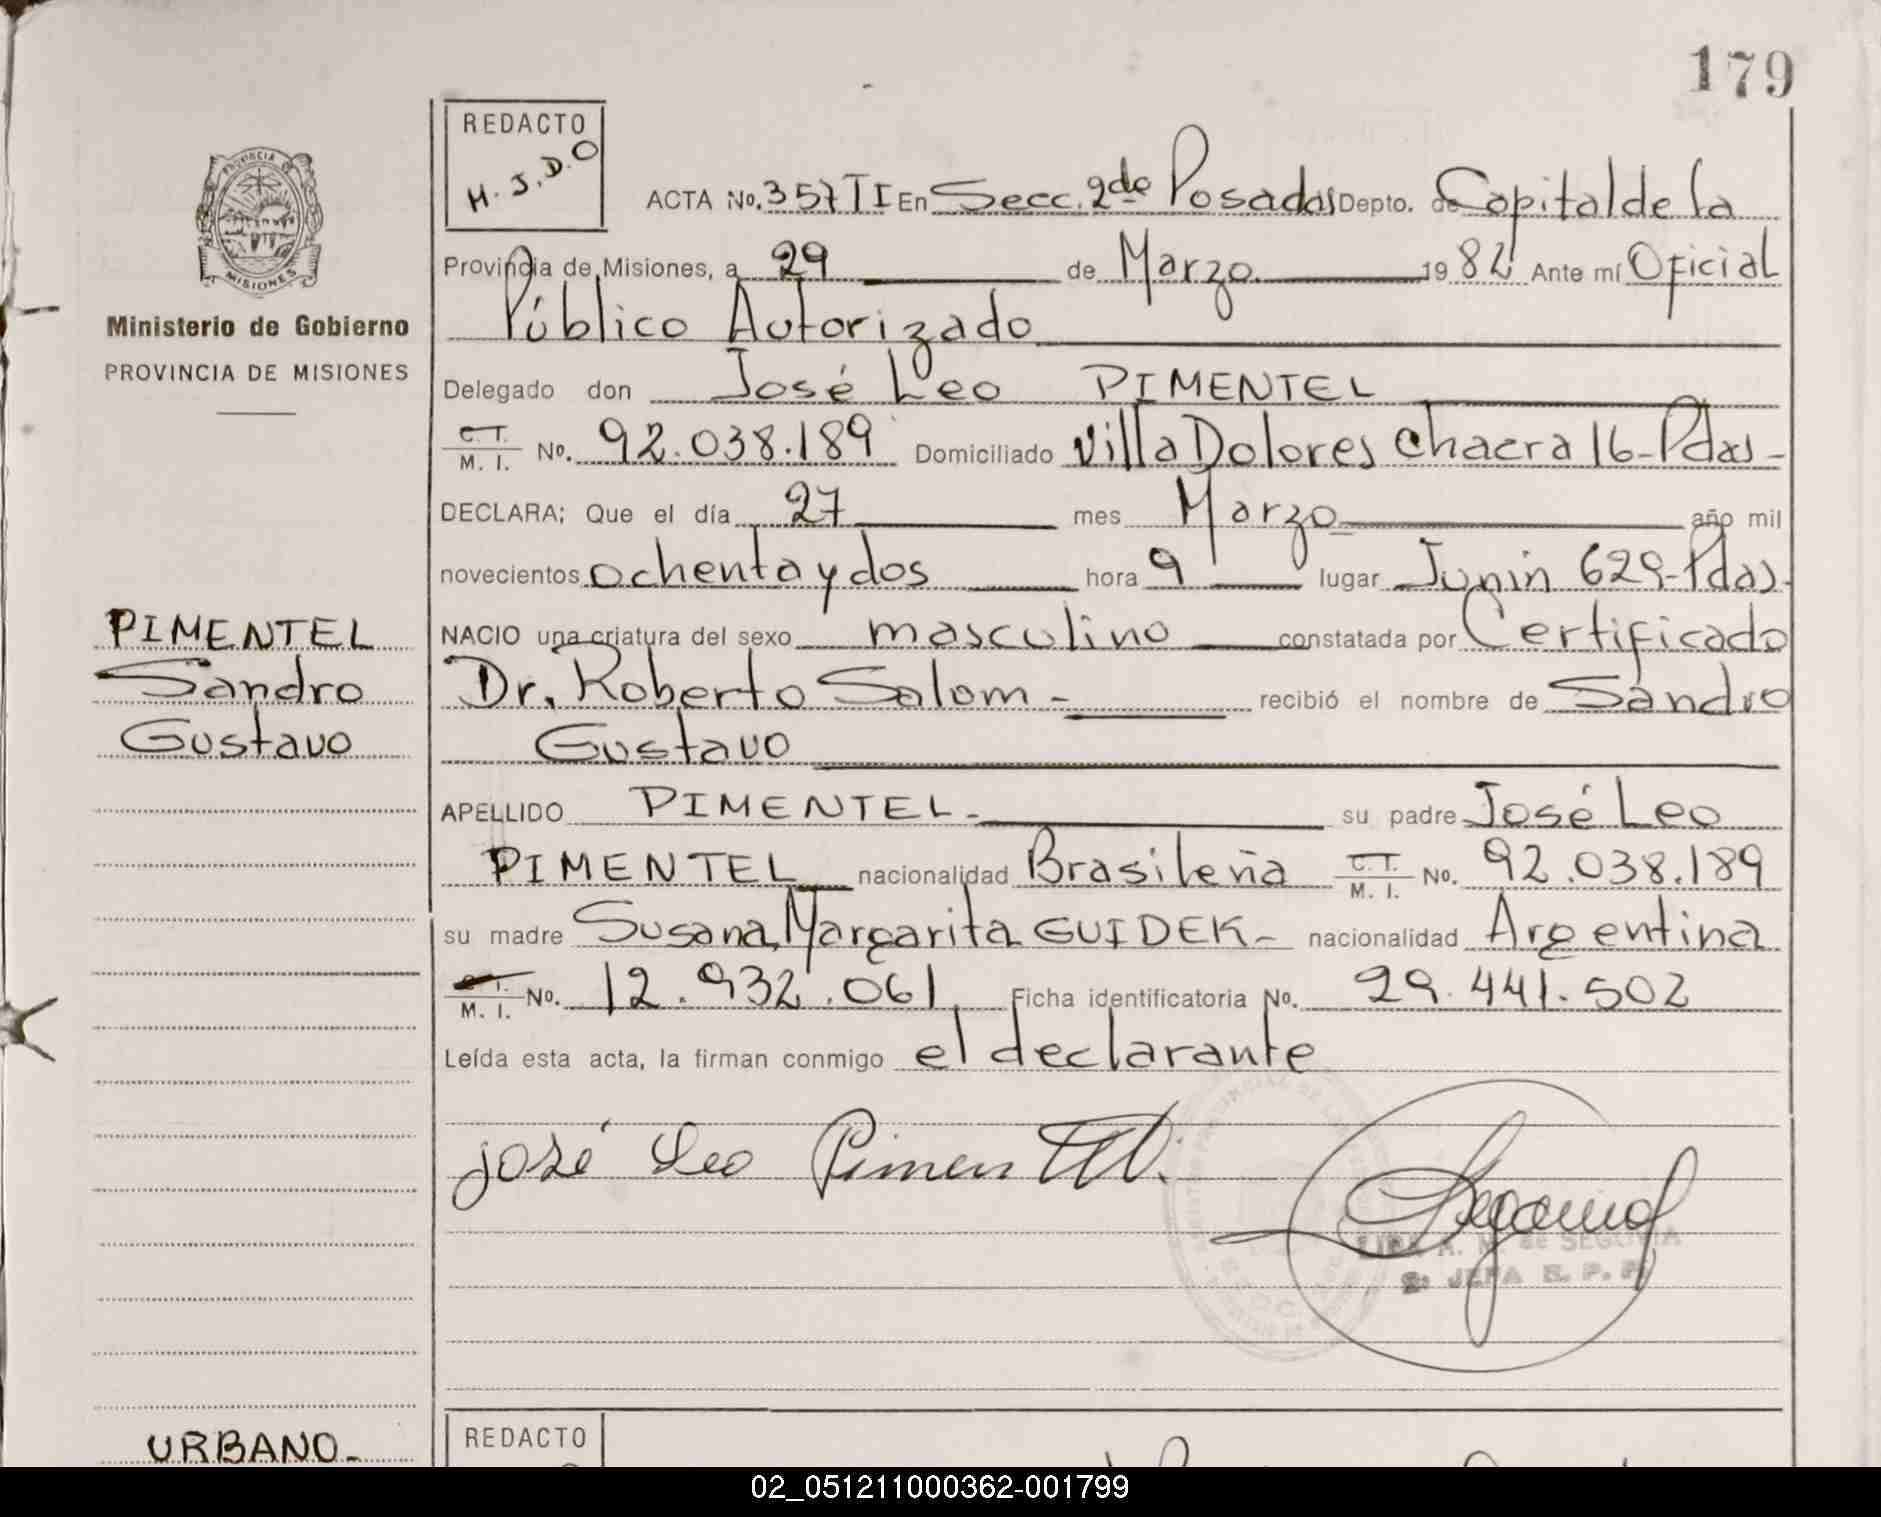 179
REDACTO
H.J.D.O
ACTA No. 357 T I En Secc. 2da Posadas Depto. de Capital de la
Provincia de Misiones, a 29 de Marzo 1982 Ante mí Oficial
Público Autorizado
PROVINCIA DE MISIONES
Ministerio de Gobierno
PROVINCIA DE MISIONES
Delegado don José Leo PIMENTEL
C. I. M. I. No. 92.038.189 Domiciliado Villa Dolores Chacra 16-Pdas-
DECLARA; Que el día 27 mes Marzo año mil
novecientos ochenta y dos hora 9 lugar Junin 629-Pdas.
PIMENTEL
Sandro
Gustavo
NACIO una criatura del sexo masculino constatada por Certificado
Dr. Roberto Salom - recibió el nombre de Sandro
Gustavo
APELLIDO PIMENTEL - su padre José Leo
PIMENTEL nacionalidad Brasileña C. I. M. I. No. 92.038.189
su madre Susana Margarita GUIDEK - nacionalidad Argentina
M. I. No. 12.932.061 Ficha identificatoria No. 29.441.502
Leída esta acta, la firman conmigo el declarante
José Leo Pimentel
A. M. de SEGOVIA
JEFA
URBANO-
REDACTO
02_051211000362-001799